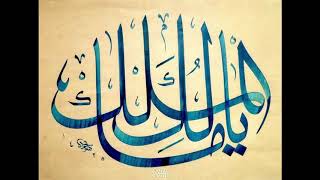 يا مالك الملك